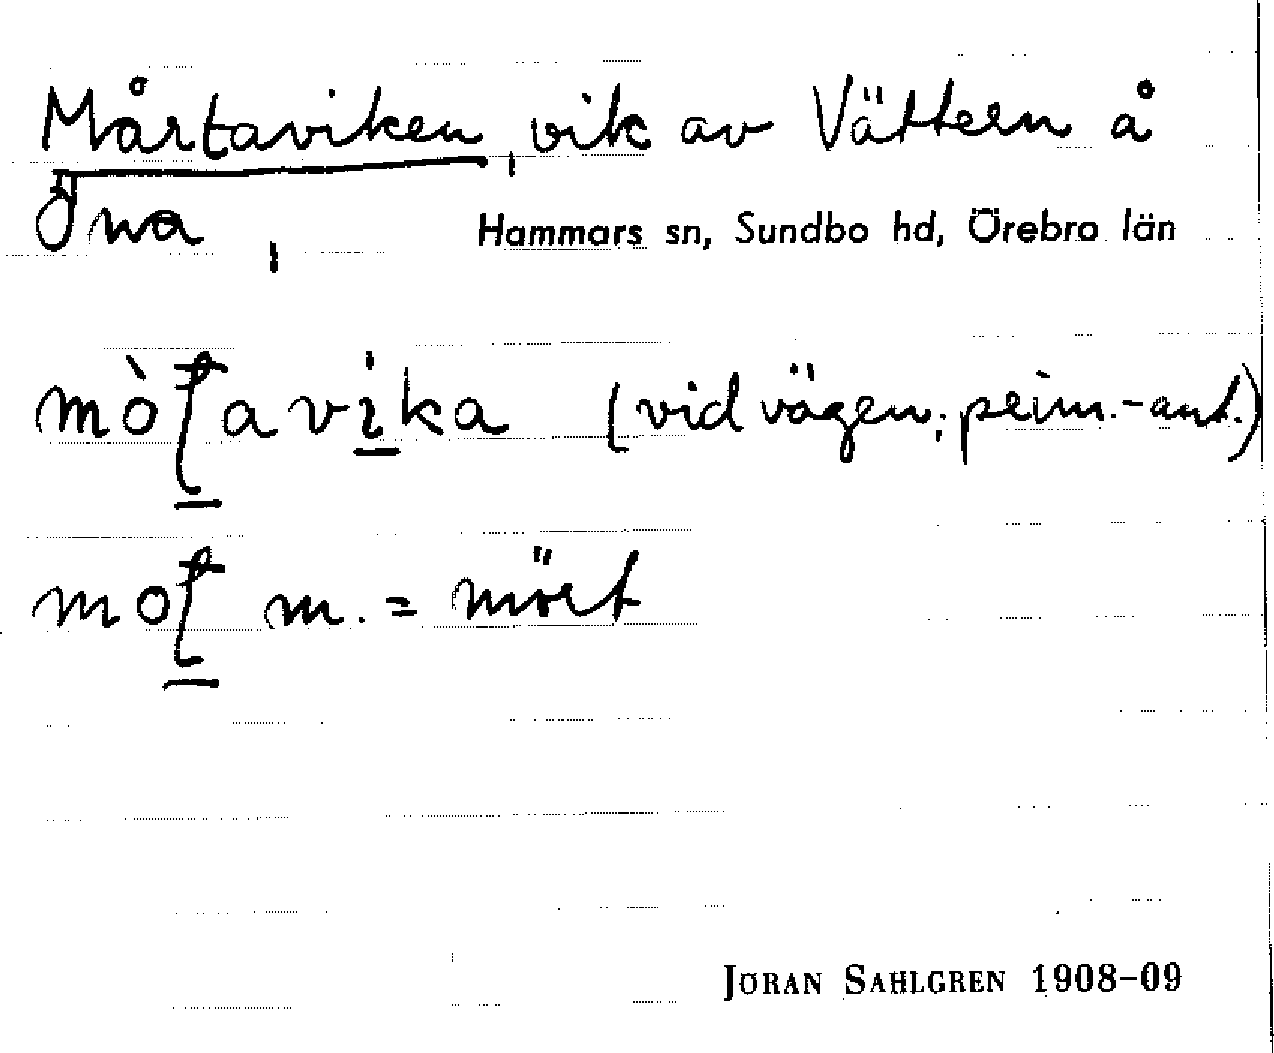 Mårtaviken, vik av Vättern å
Ǫna, Hammars sn, Sundbo hd, Örebro län
(vid vägen; prim.-ant.)
m. = mört
JÖRAN SAHLGREN 1908–09